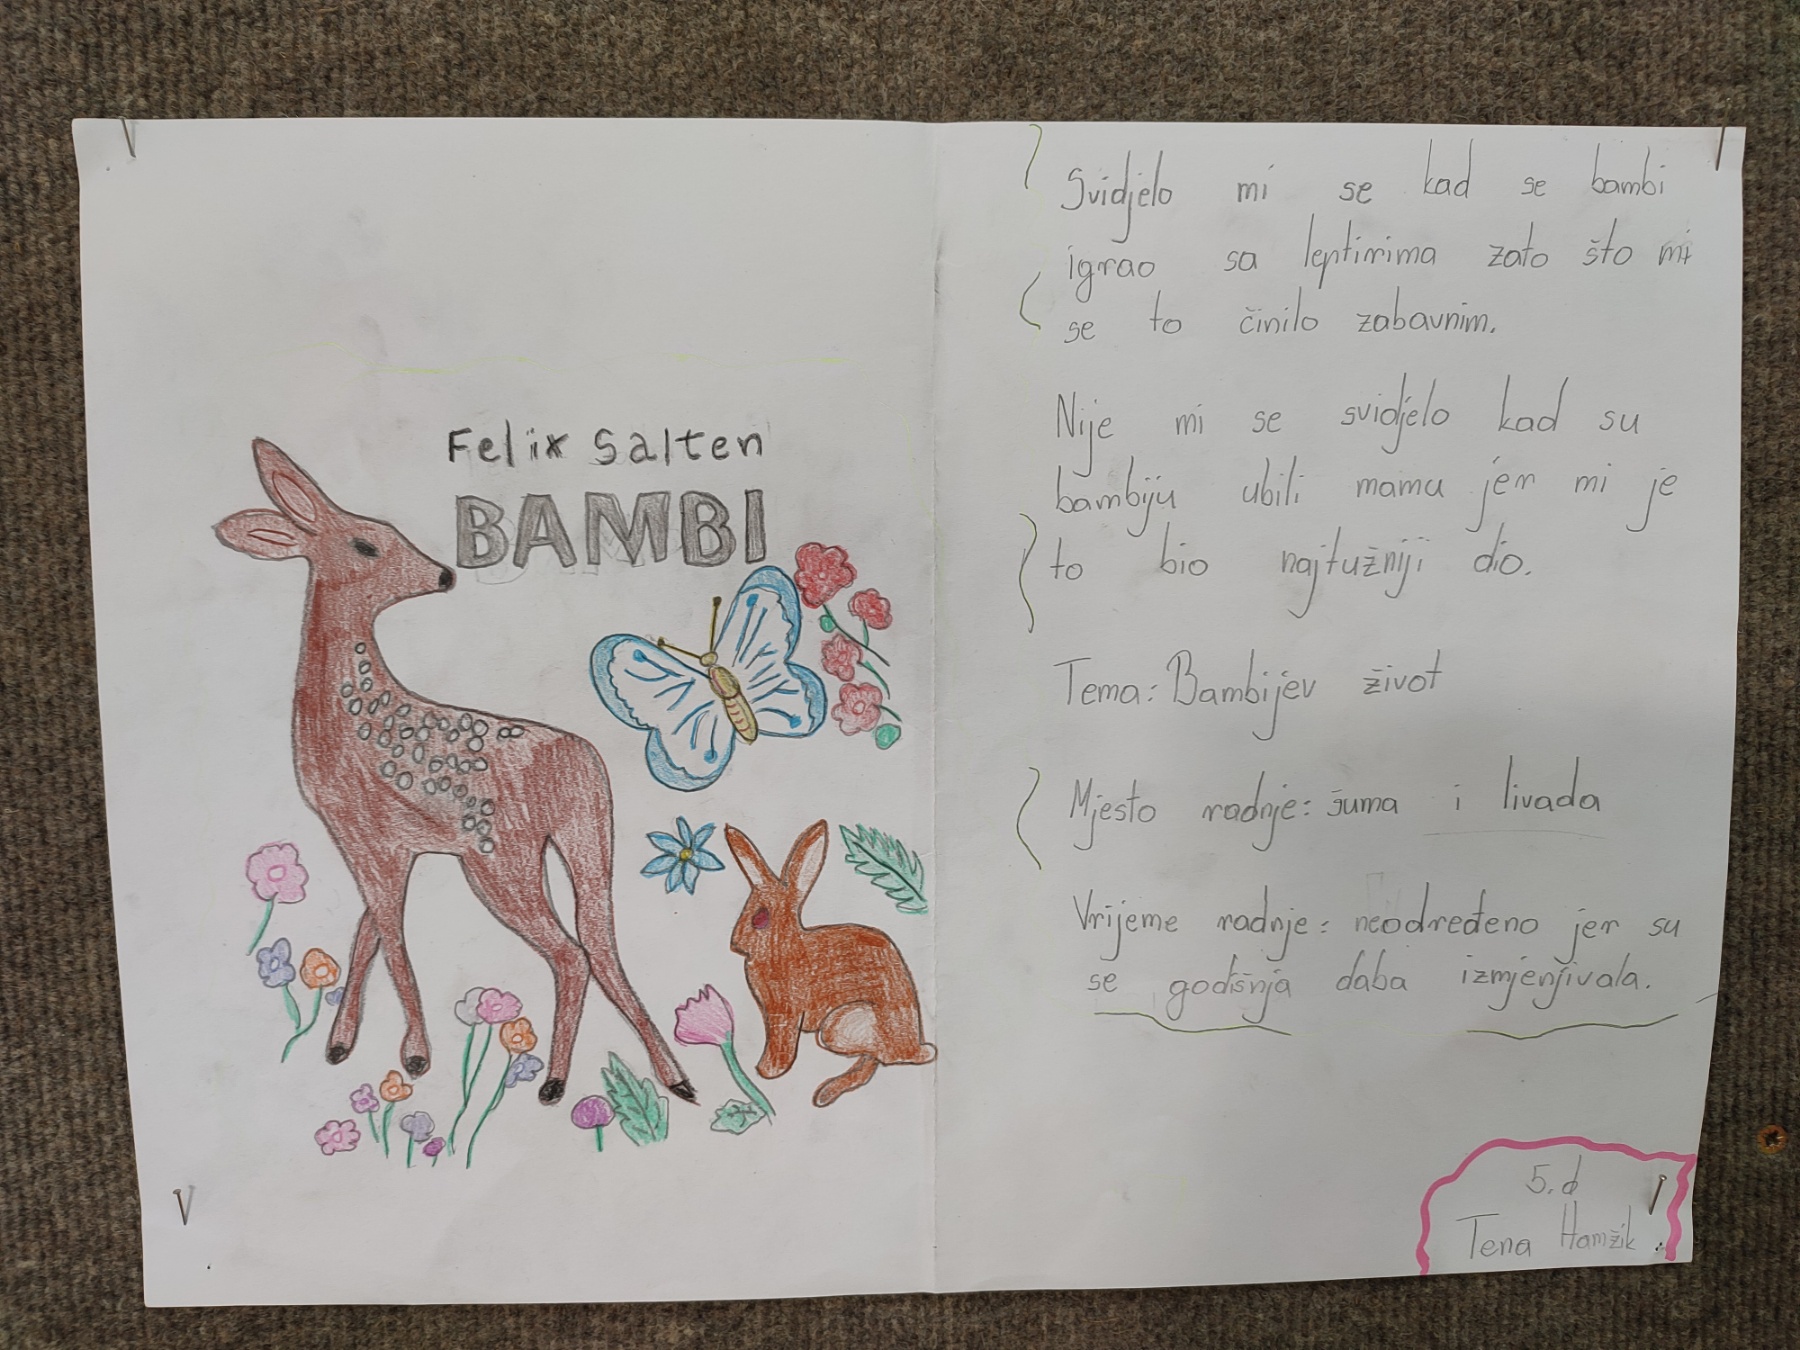 Felix Salten
BAMBI
Svidjelo mi se kad se bambi
igrao sa leptirima zato što mi
se to činilo zabavnim.
Nije mi se svidjelo kad su
bambiju ubili mamu jer mi je
to bio najtužniji dio.
Tema: Bambijev život
Mjesto radnje: šuma i livada
Vrijeme radnje: neodređeno jer su
se godišnja daba izmjenjivala.
5. d
Tena Hamžik